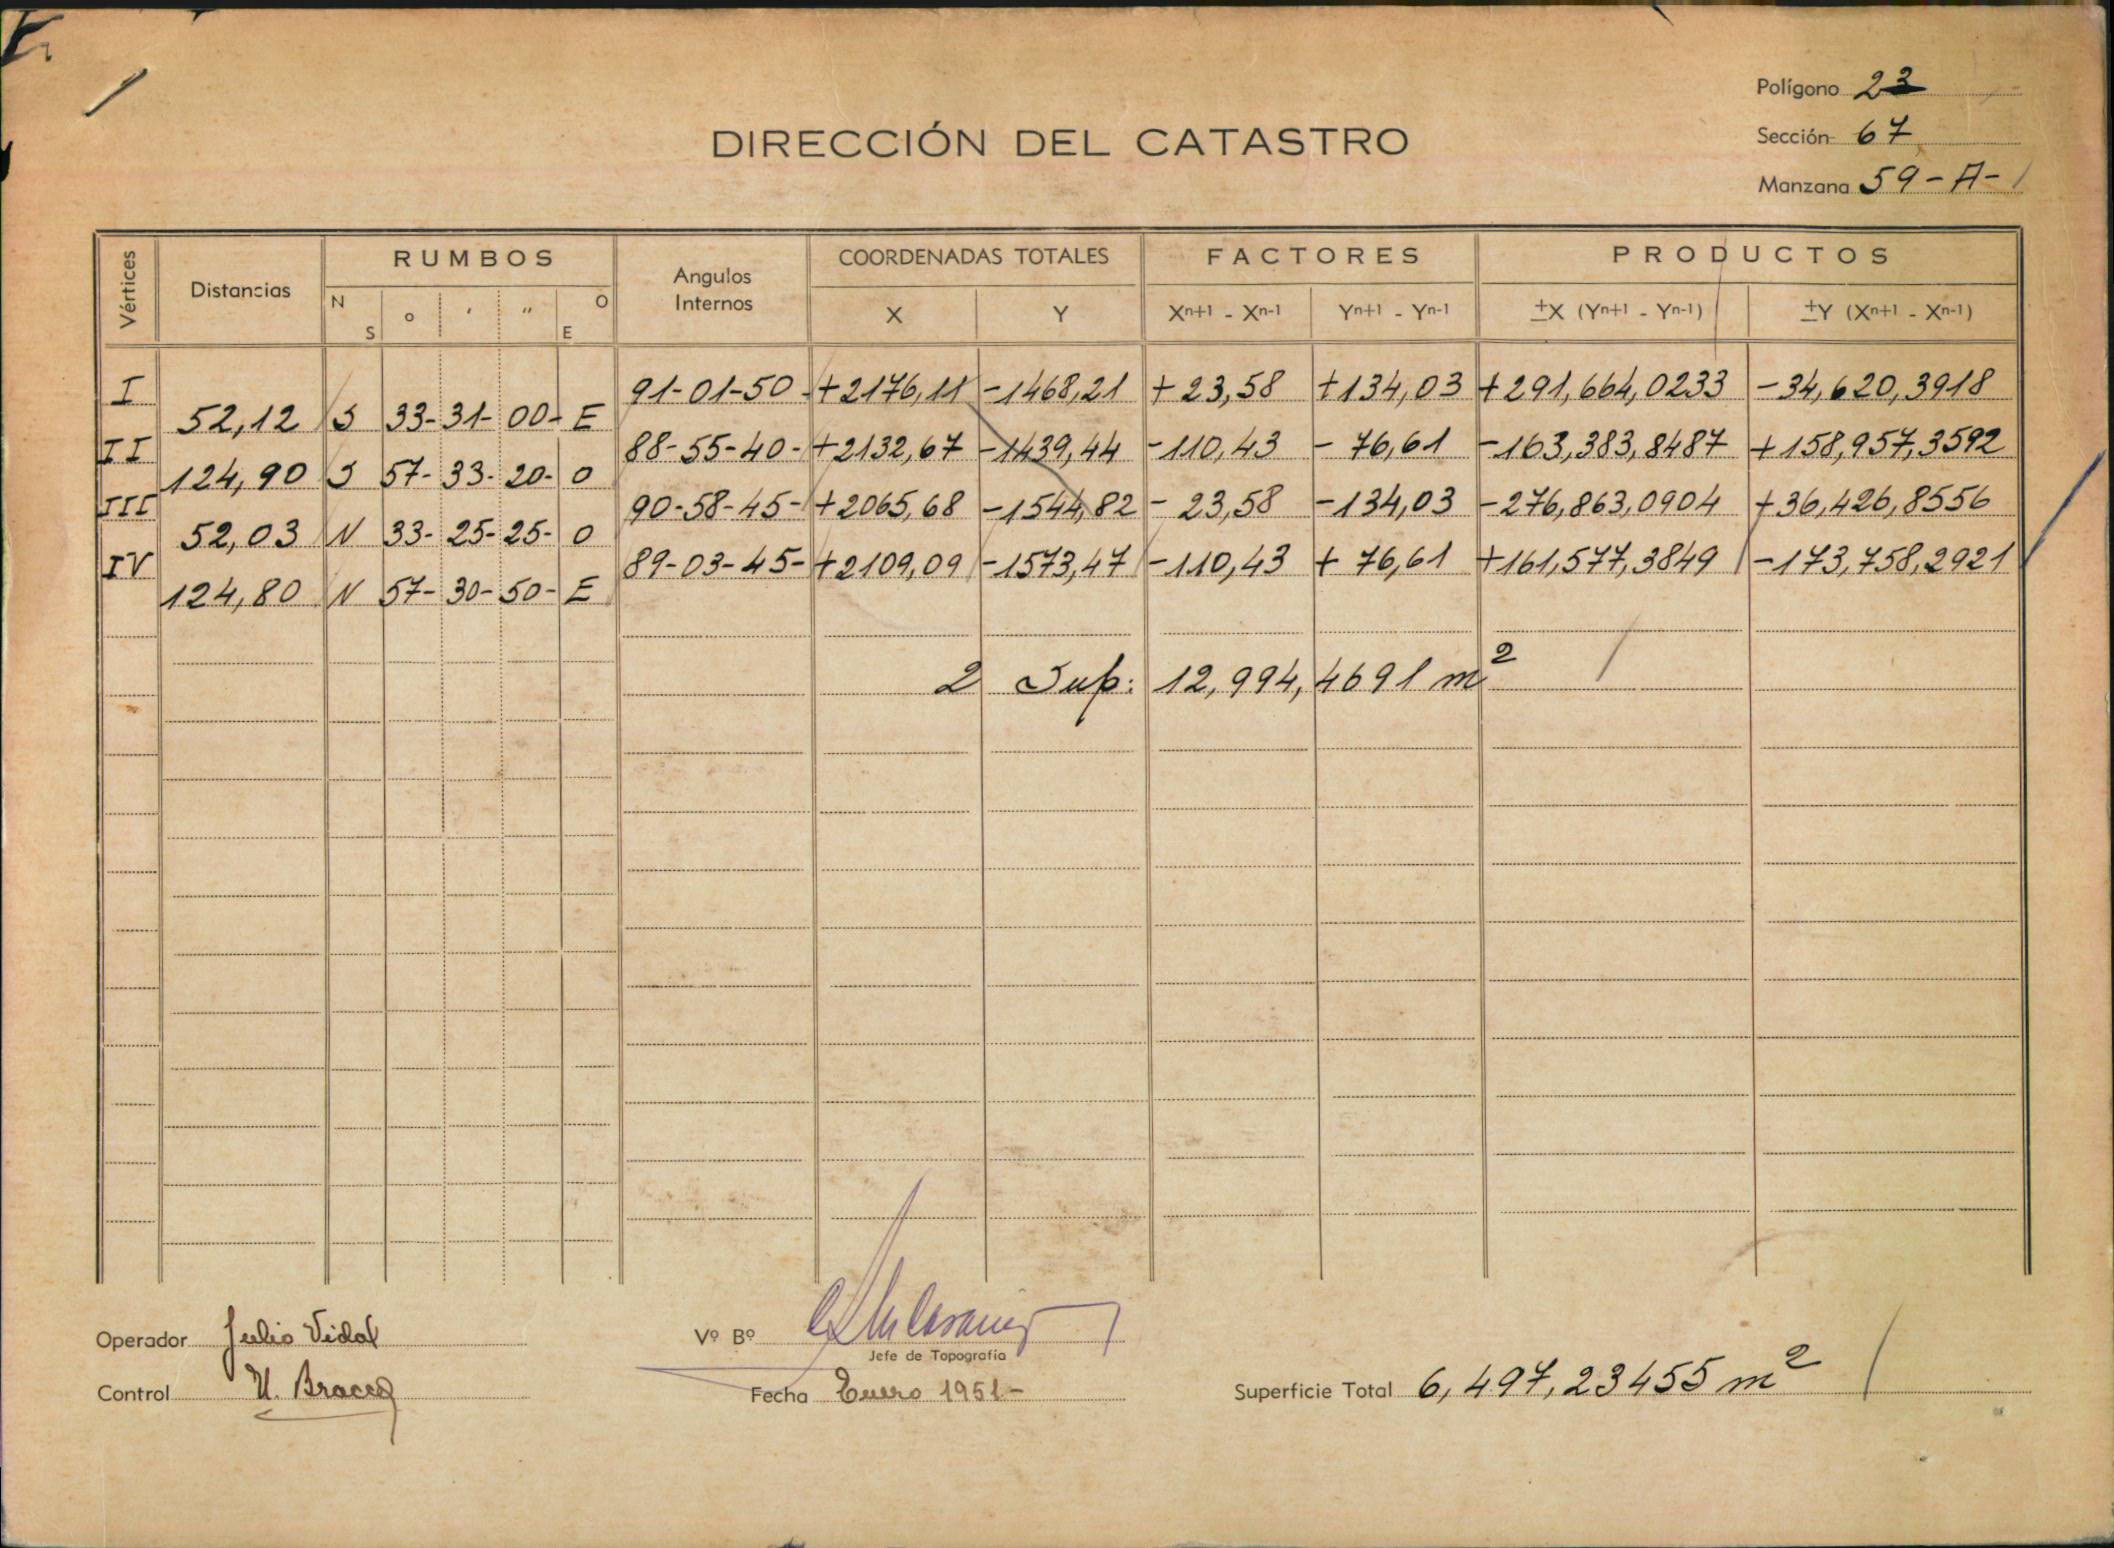 Polígono 23
DIRECCIÓN DEL CATASTRO
Sección 67
Manzana 59-A-
Vértices Distancias RUMBOS Angulos Internos COORDENADAS TOTALES FACTORES PRODUCTOS
N S ° ' " O E X Y Xn+1 - Xn-1 Yn+1 - Yn-1 ±X (Yn+1 - Yn-1) ±Y (Xn+1 - Xn-1)
I 91-01-50- +2176,11 -1468,21 +23,58 +134,03 +291,664,0233 -34,620,3918
52,12 S 33-31-00-E
II 88-55-40- +2132,67 -1439,44 -110,43 -76,61 -163,383,8487 +158,957,3592
124,90 S 57-33-20-O
III 90-58-45- +2065,68 -1544,82 -23,58 -134,03 -276,863,0904 +36,426,8556
52,03 N 33-25-25-O
IV 89-03-45- +2109,09 -1573,47 -110,43 +76,61 +161,577,3849 -173,758,2921
124,80 N 57-30-50-E
2 Sup: 12,994,4691 m²
Operador Julio Vidal
Vº Bº
Jefe de Topografía
Control U. Bracco
Fecha Enero 1951-
Superficie Total 6,497,23455 m²